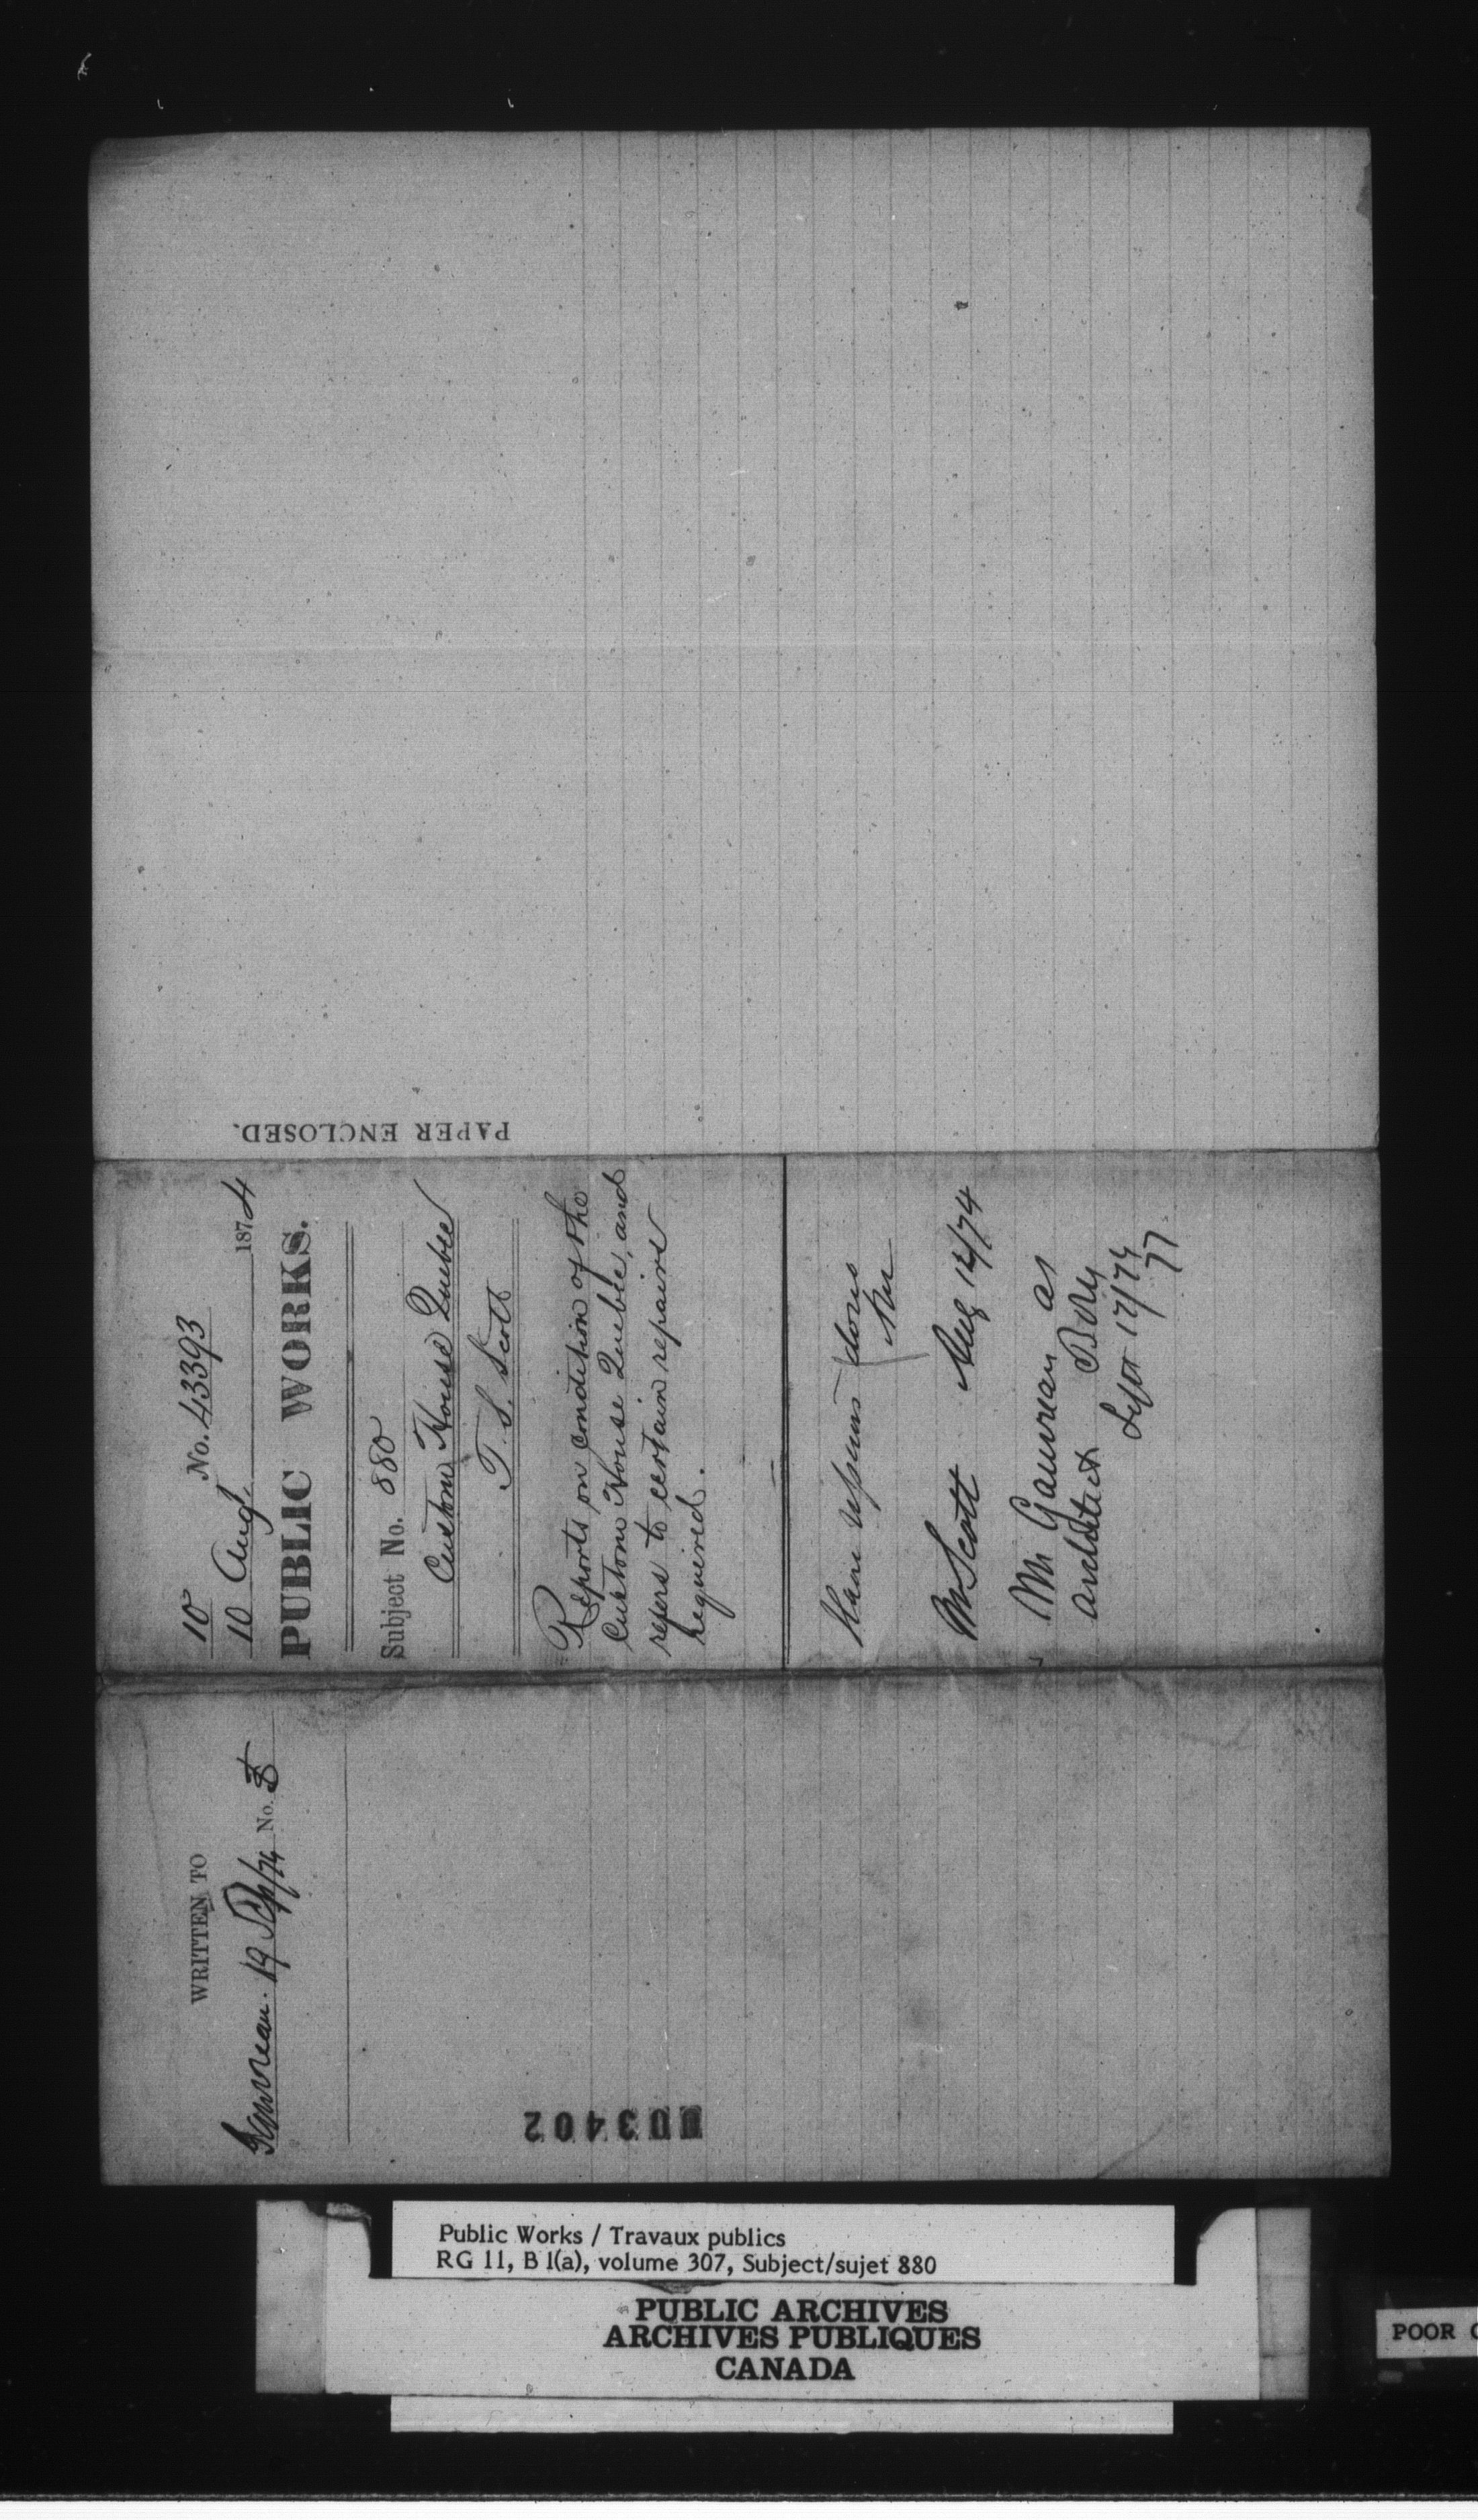 PAPER ENCLOSED.
10 No. 43393
10 Augt. 1874
PUBLIC WORKS.
Subject No. 880
Custom House Quebec
T. S. Scott
Reports on condition of the
Custom House Quebec, and
refers to certain repairs
required.
Have repairs done
Mr Scott Aug 12/74
Mr Gauvreau as
architect
Sept 17/74
WRITTEN TO
Gauvreau. 19 Sep/74 No.
3402
Public Works / Travaux publics
RG 11, B 1(a), volume 307, Subject/sujet 880
PUBLIC ARCHIVES
ARCHIVES PUBLIQUES
CANADA
POOR